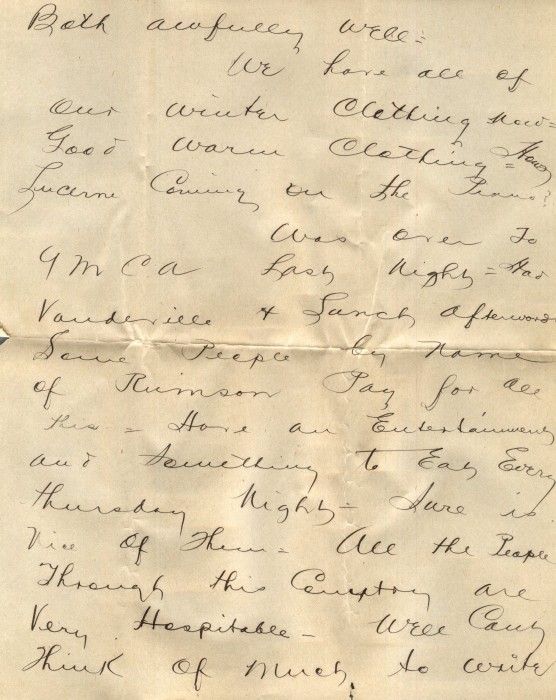 Both awfully well =
We have all of
our winter Clothing now =
Good warm Clothing = Hows
Lucerne Coming on the Piano?
Was over to
YMCA Last Night = Had
Vaudeville & Lunch afterwards
Some People by Name
of Rumson Pay for all
this = Have an Entertainment
and something to Eat Every
thursday Night = Sure is
Nice Of Them = All the People
Through this Country are
Very Hospitable - Well Cant
Think Of Much to write